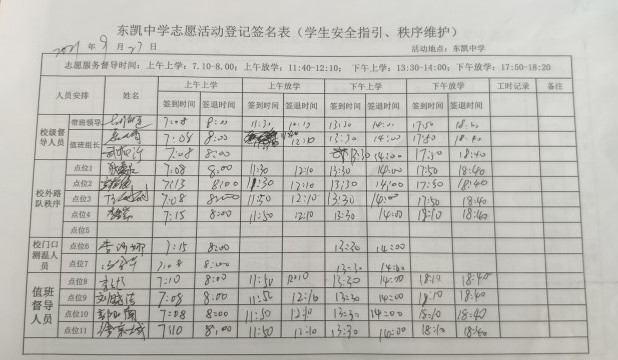 东凯中学志愿活动登记签名表（学生安全指引、秩序维护）
2021 年 9 月 27 日 活动地点：东凯中学
志愿服务督导时间：上午上学：7.10-8.00；上午放学：11:40-12:10； 下午上学：13:30-14:00； 下午放学：17:50-18:20
人员安排 姓名 上午上学 上午放学 下午上学 下午放学 工时记录 备注
签到时间 签退时间 签到时间 签退时间 签到时间 签退时间 签到时间 签退时间
校级督导人员 带班领导 7:08 8:00 11:30 13:30 14:00 17:50 18:20
值班组长 7:08 8:00 12:10 13:30 14:00 17:50 18:40
7:08 8:00 13:30 14:00 17:30 18:40
校外路队秩序 点位1 7:08 8:00 11:30 12:10 13:30 14:00 17:50 18:40
点位2 7:13 8:00 11:30 12:10 13:30 14:00 17:50 18:40
点位3 7:08 8:00 11:50 12:10 13:30 14:00 17:50 18:40
点位4 7:15 8:00 11:50 12:10 13:30 14:00 18:10 18:40
点位5
校门口测温人员 点位6 7:15 8:00 13:30 14:00
点位7 7:08 8:00 13:30 14:00
值班督导人员 点位8 7:10 8:00 11:50 12:10 13:30 14:00 18:10 18:40
点位9 7:08 8:00 11:50 12:10 13:30 14:00 18:10 18:40
点位10 7:08 8:00 11:50 12:10 13:30 14:00 18:10 18:40
点位11 7:10 8:00 11:50 12:10 13:30 14:00 18:10 18:40